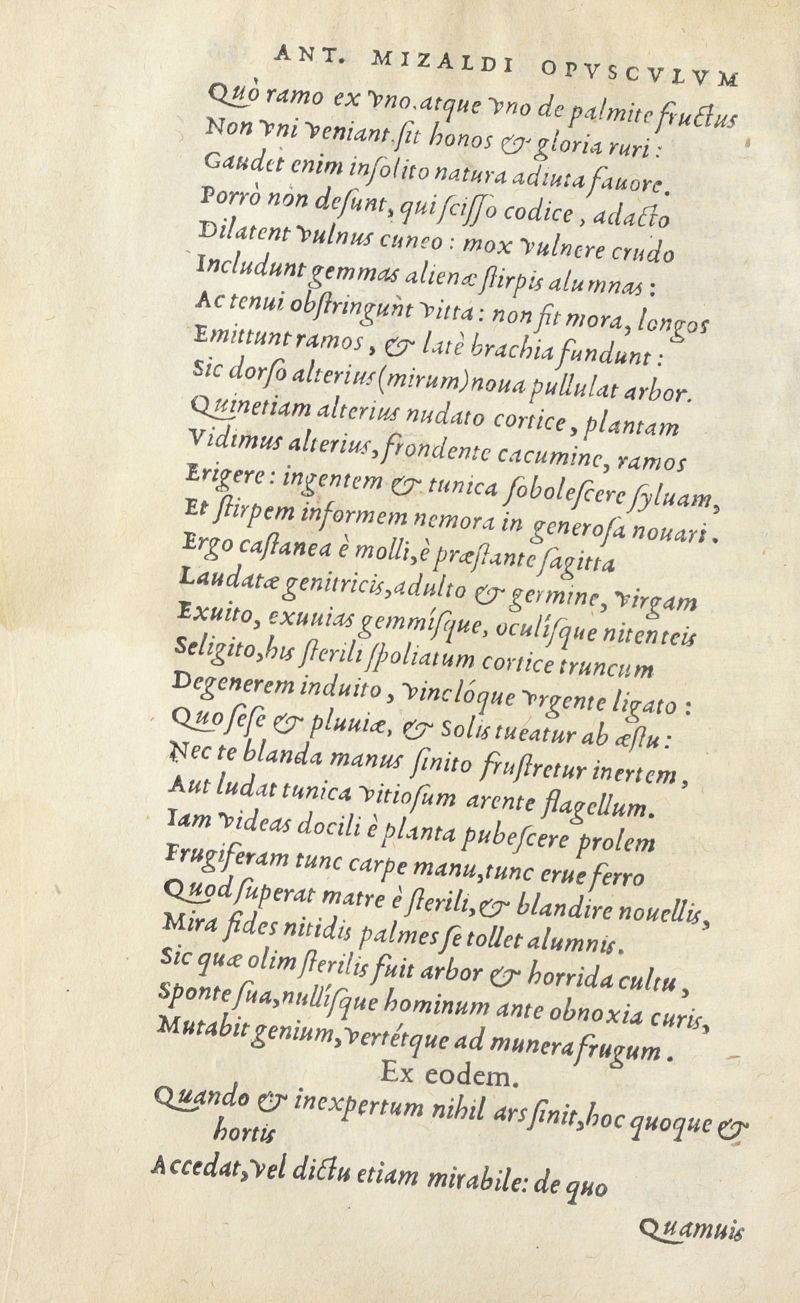 ANT. MIZALDI OPVSCVLVM
Quò ramo ex vno, atque vno de palmite fructus
Non vni veniant. ſit honos & gloria ruri:
Gaudet enim inſolito natura adiuta fauore.
Porrò non deſunt, qui ſciſſo codice, adacto
Dilatent vulnus cuneo: mox vulnere crudo
Includunt gemmas alienæ ſtirpis alumnas:
Ac tenui obſtringunt vitta: non fit mora, longos
Emittunt ramos, & latè brachia fundunt:
Sic dorſo alterius (mirum) noua pullulat arbor.
Quinetiam alterius nudato cortice, plantam
Vidimus alterius, frondente cacumine, ramos
Erigere: ingentem & tunica ſoboleſcere ſyluam,
Et ſtirpem informem nemora in generoſa nouari.
Ergo caſtanea è molli, è præſtante ſagitta
Laudatæ genitricis, adulto & germine, virgam
Exuito, exuuias gemmíſque, oculíſque nitenteis
Seligito, his ſterili ſpoliatum cortice truncum
Degenerem induito, vinclóque vrgente ligato:
Quo ſeſe & pluuiæ, & Solis tueatur ab æſtu:
Nec te blanda manus ſinito fruſtretur inertem,
Aut ludat tunica vitioſum arente flagellum.
Iam videas docili è planta pubeſcere prolem
Frugiferam tunc carpe manu, tunc erue ferro
Quod ſuperat matre è ſterili, & blandire nouellis,
Mira fides nitidis palmes ſe tollet alumnis.
Sic quæ olim ſterilis fuit arbor & horrida cultu,
Sponte ſua, nullíſque hominum ante obnoxia curis,
Mutabit genium, vertétque ad munera frugum.
Ex eodem.
Quando & inexpertum nihil ars ſinit, hoc quoque &
hortis
Accedat, vel dictu etiam mirabile: de quo
Quamuis